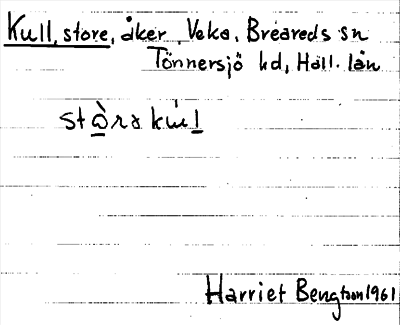 Kull, store, åker, Veka, Breareds sn
Tönnersjö hd, Hall. län
stò̱rə kùḻ
Harriet Bengtson 1961